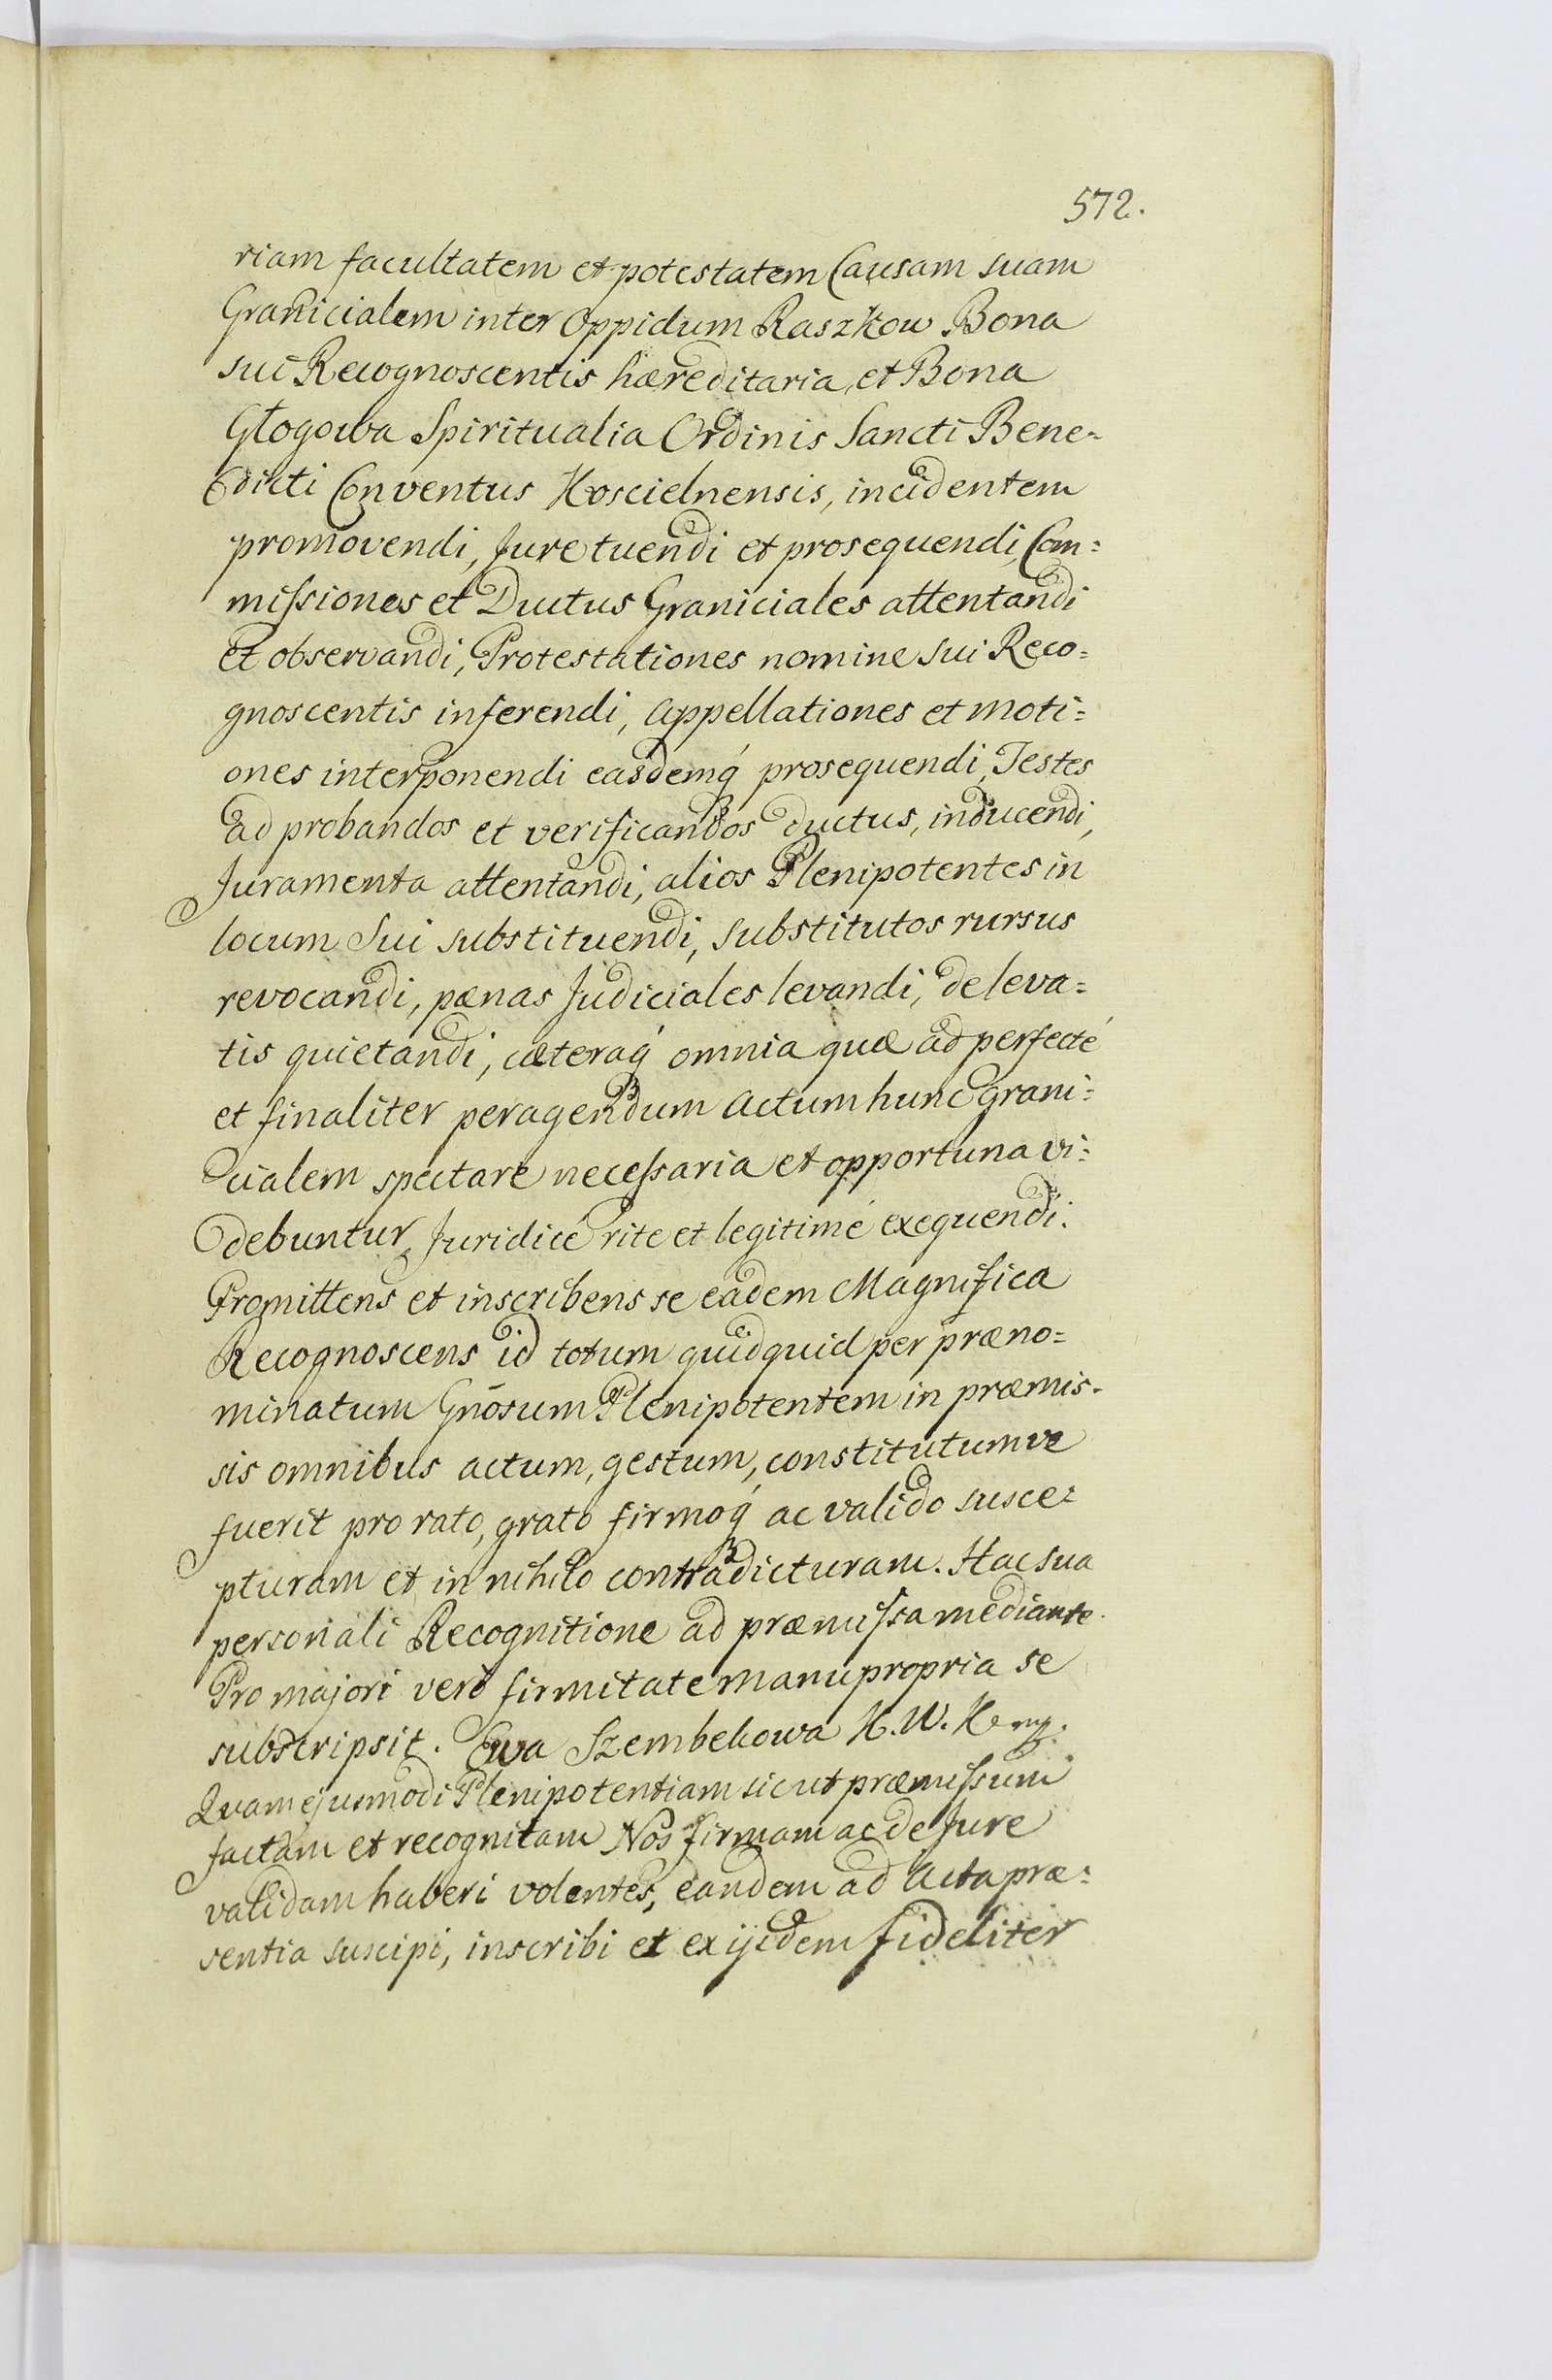 572.
riam facultatem et potestatem Causam suam
Granicialem inter Oppidum Raszkow Bona
sui Recognoscentis hæreditaria, et Bona
Głogowa Spiritualia Ordinis Sancti Bene-
dicti Conventus Koscielnensis, incidentem
promovendi, Jure tuendi et prosequendi, Com=
missiones et Ductus Graniciales attentandi
et observandi, Protestationes nomine sui Reco=
gnoscentis inferendi, Appellationes et moti=
ones interponendi easdemq́ prosequendi, Testes
ad probandos et verificandos ductus, inducendi,
Juramenta attentandi, alios Plenipotentes in
locum Sui substituendi, substitutos rursus
revocandi, pænas Judiciales levandi, de leva=
tis quietandi, cæteraq́ omnia quæ ad perfecté
et finaliter peragendum actum hunc grani=
cialem spectare necessaria et opportuna vi=
debuntur, Juridicé rite et legitimé exequendi.
Promittens et inscribens se eadem Magnifica
Recognoscens id totum quidquid per præno=
minatum Gnōsum Plenipotentem in præmis-
sis omnibus actum, gestum, constitutumve
fuerit pro rato, grato firmoq́ ac valido susce=
pturam et in nihilo contradicturam. Hac sua
personali Recognitione ad præmissa mediante.
Pro majori veró firmitate manu propria se
subscripsit. Ewa Szembekowa K. W. K. mp.
Quam ejusmodi Plenipotentiam sicut præmissum
factam et recognitam Nos firmam ac de Jure
validam haberi volentes, eandem ad Acta præ=
sentia suscipi, inscribi et ex ijsdem fideliter